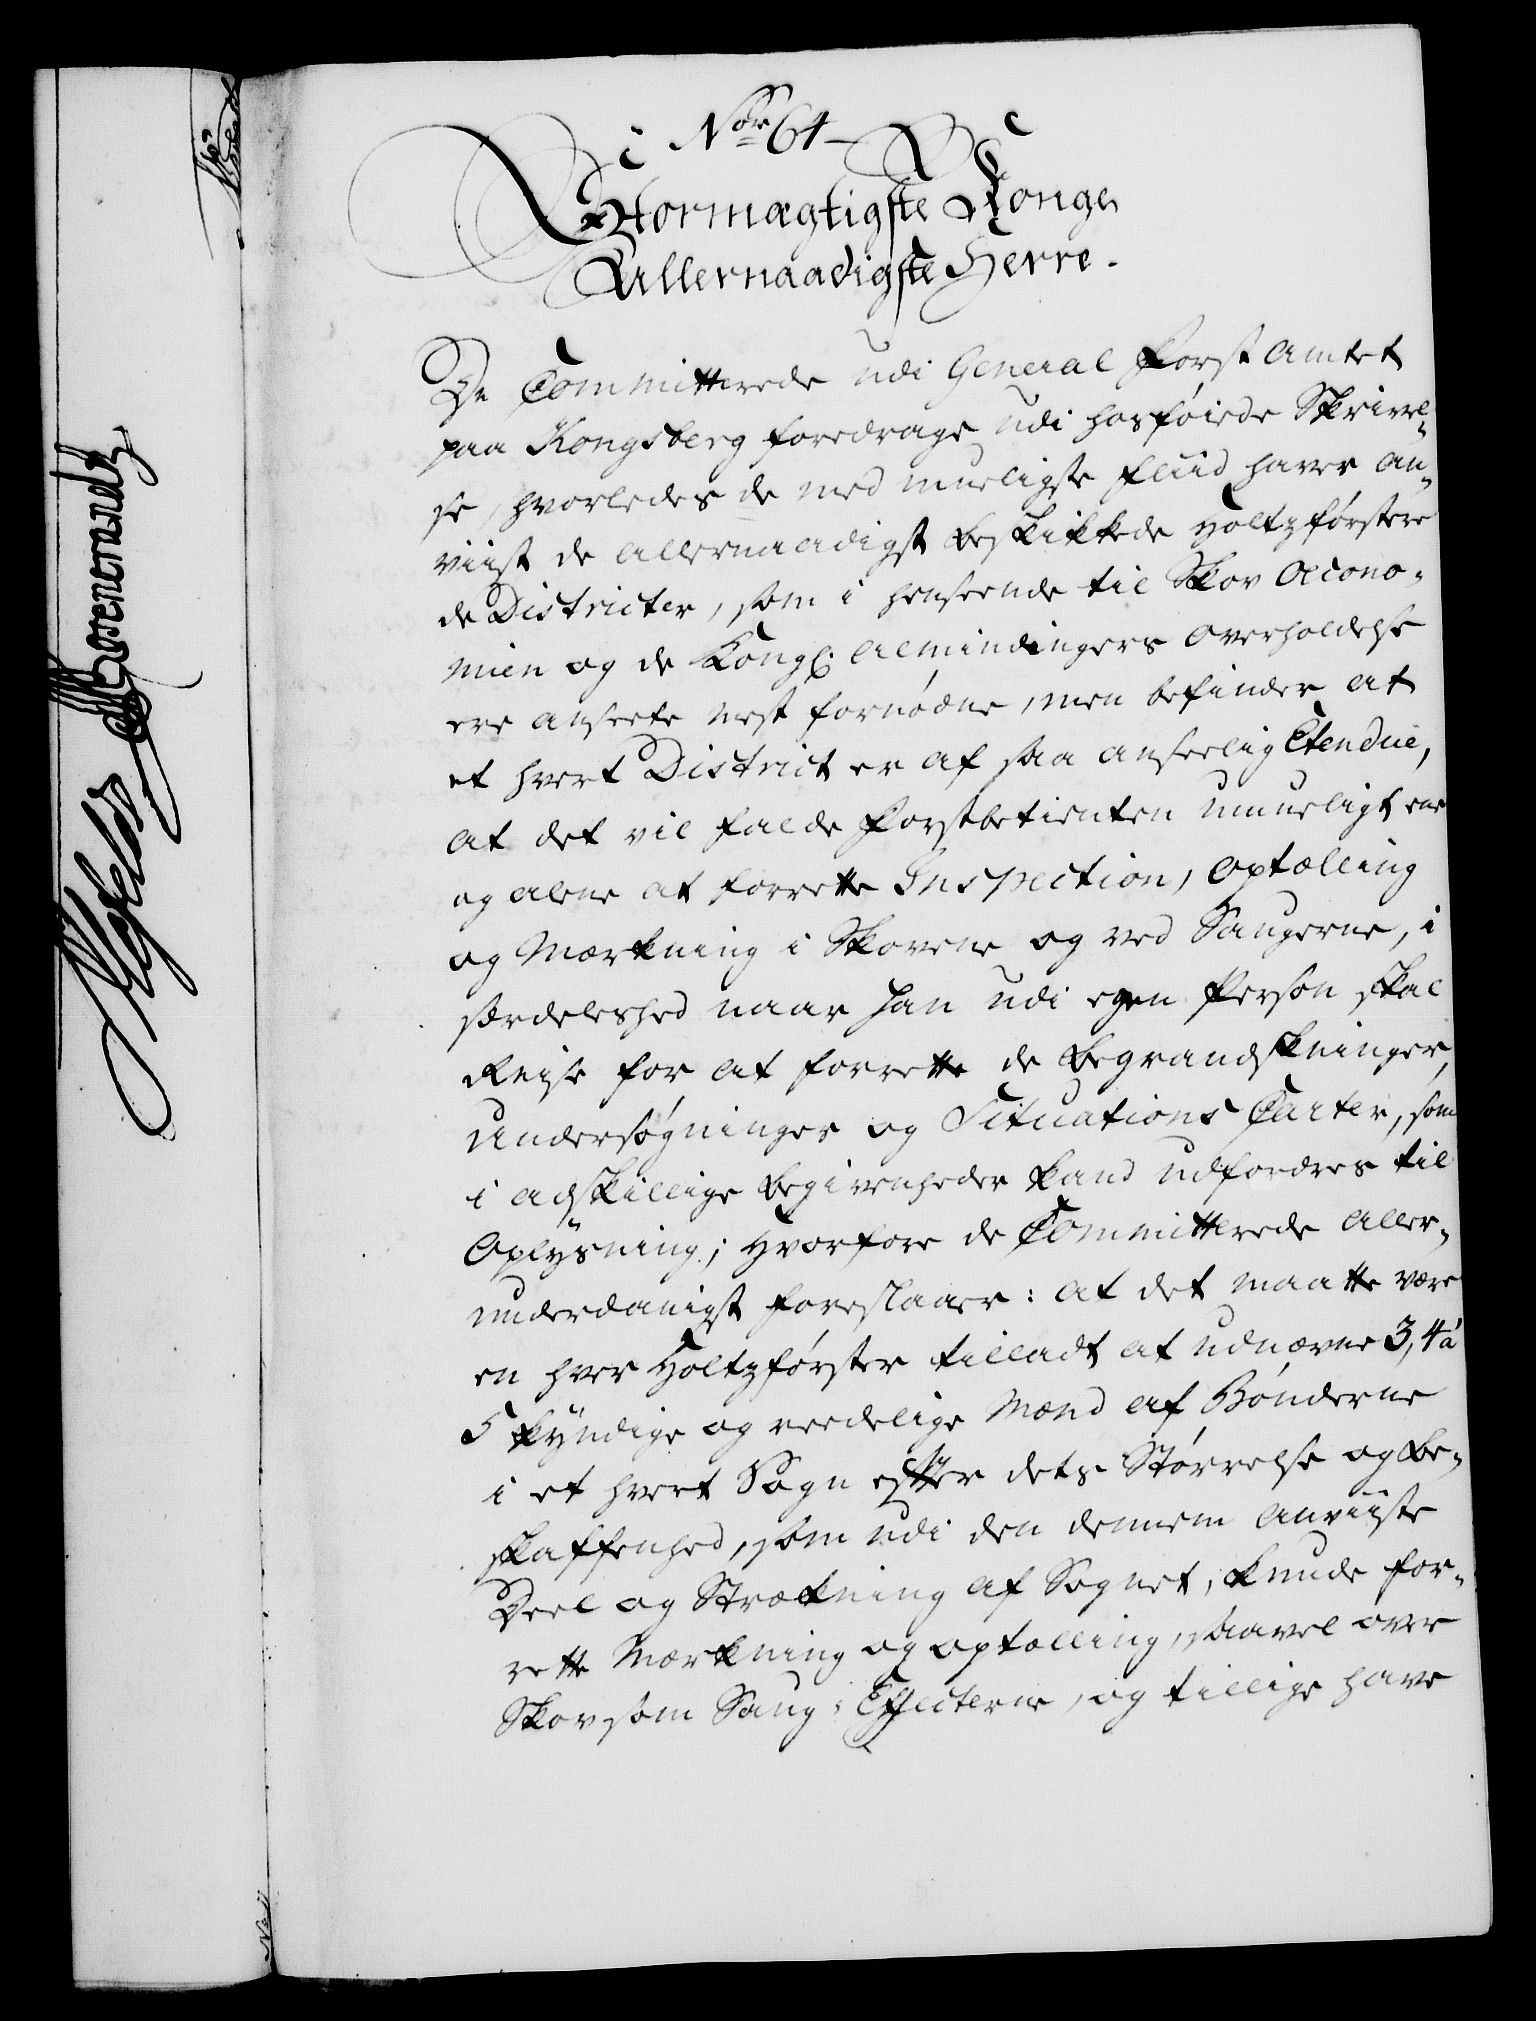 Nor 64
Stormægtigste Konge
Allernaadigste Herre.
De Committerede udi General Forst Amtet
paa Kongsberg foredrage udi hosføiede Skrivel-
se, hvorledes de med mueligste Fliid haver an-
viist de allernaadigst beskikkede Holtzførstere
de Districter, som i henseende til Skov Oecono-
mien og de Kongl. Almindingers Overholdelse
ere anseete mest fornødne, men befinder at
et hvert District er af saa anseelig Etendue,
at det vil falde Forstbetienten umueligt ene
og alene at forrette Inspection, Optælling
og Mærkning i Skovene og ved Saugerne, i
særdeleshed naar han udi egen Person skal
Reise for at forrette de Begrandskninger,
Undersøgninger og Situations Carter, som
i adskillige Begivenheder kand udfordres til
Oplysning; Hvorfore de Committerede aller-
underdanigst foreslaaer: at det maatte være
en hver Holtzførster tilladt at udnævne 3, 4 á
5 kyndige og reedelige Mænd af Bønderne
i et hvert Sogn efter dets Størrelse og Be-
skaffenhed, som udi den dennem anviiste
Deel og Strækning af Sognet, kunde for-
rette Mærkning og optælling, saavel over
Skov som Saug-Effecterne, og tillige have